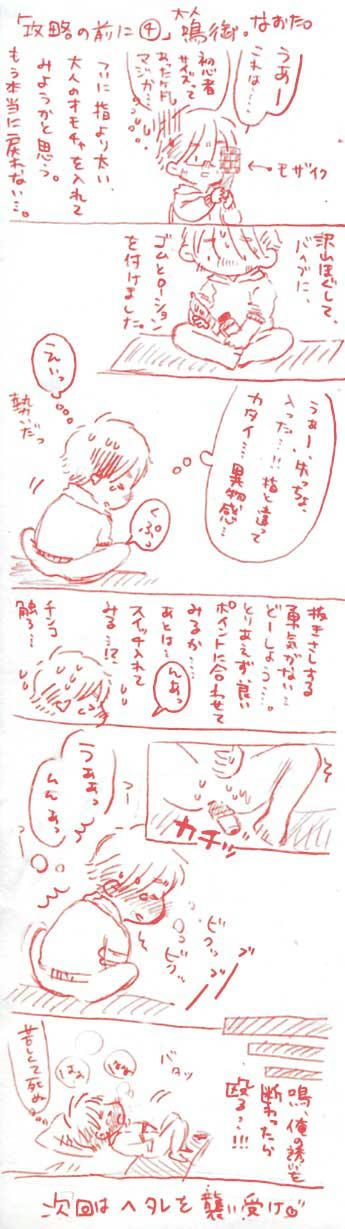 「攻略の前に④」大人鳴御。なおた。
うぁー
これは…、
初心者
サイズって
あったケド、
マジか…。
←モザイク
ついに指より太い、
大人のオモチャを入れて
みようかと思う。
もう本当に戻れない…。
沢山ほぐして、
バイブに、
ゴムとローション
を付けました。
うぁー、やっちょ、
入った…!!指と違って
カタイ…異物感…
えいっ
勢いだっ
くぷっ
抜きさしする
勇気がない…
どーしょう…。
とりあえず良い
ポイントに合わせて
みるか…
んあっ
あとは…
スイッチ入れて
みる…!?
チンコ
触ろ…
カチッ
うぁぁっ
んんあっ
ビクッ
ビクッ
ブブ
バタッ
はぁ
はぁ
苦しくて死ぬ
鳴、俺の誘いを
断わったら
殴る…!!!
次回はヘタレを襲い受け